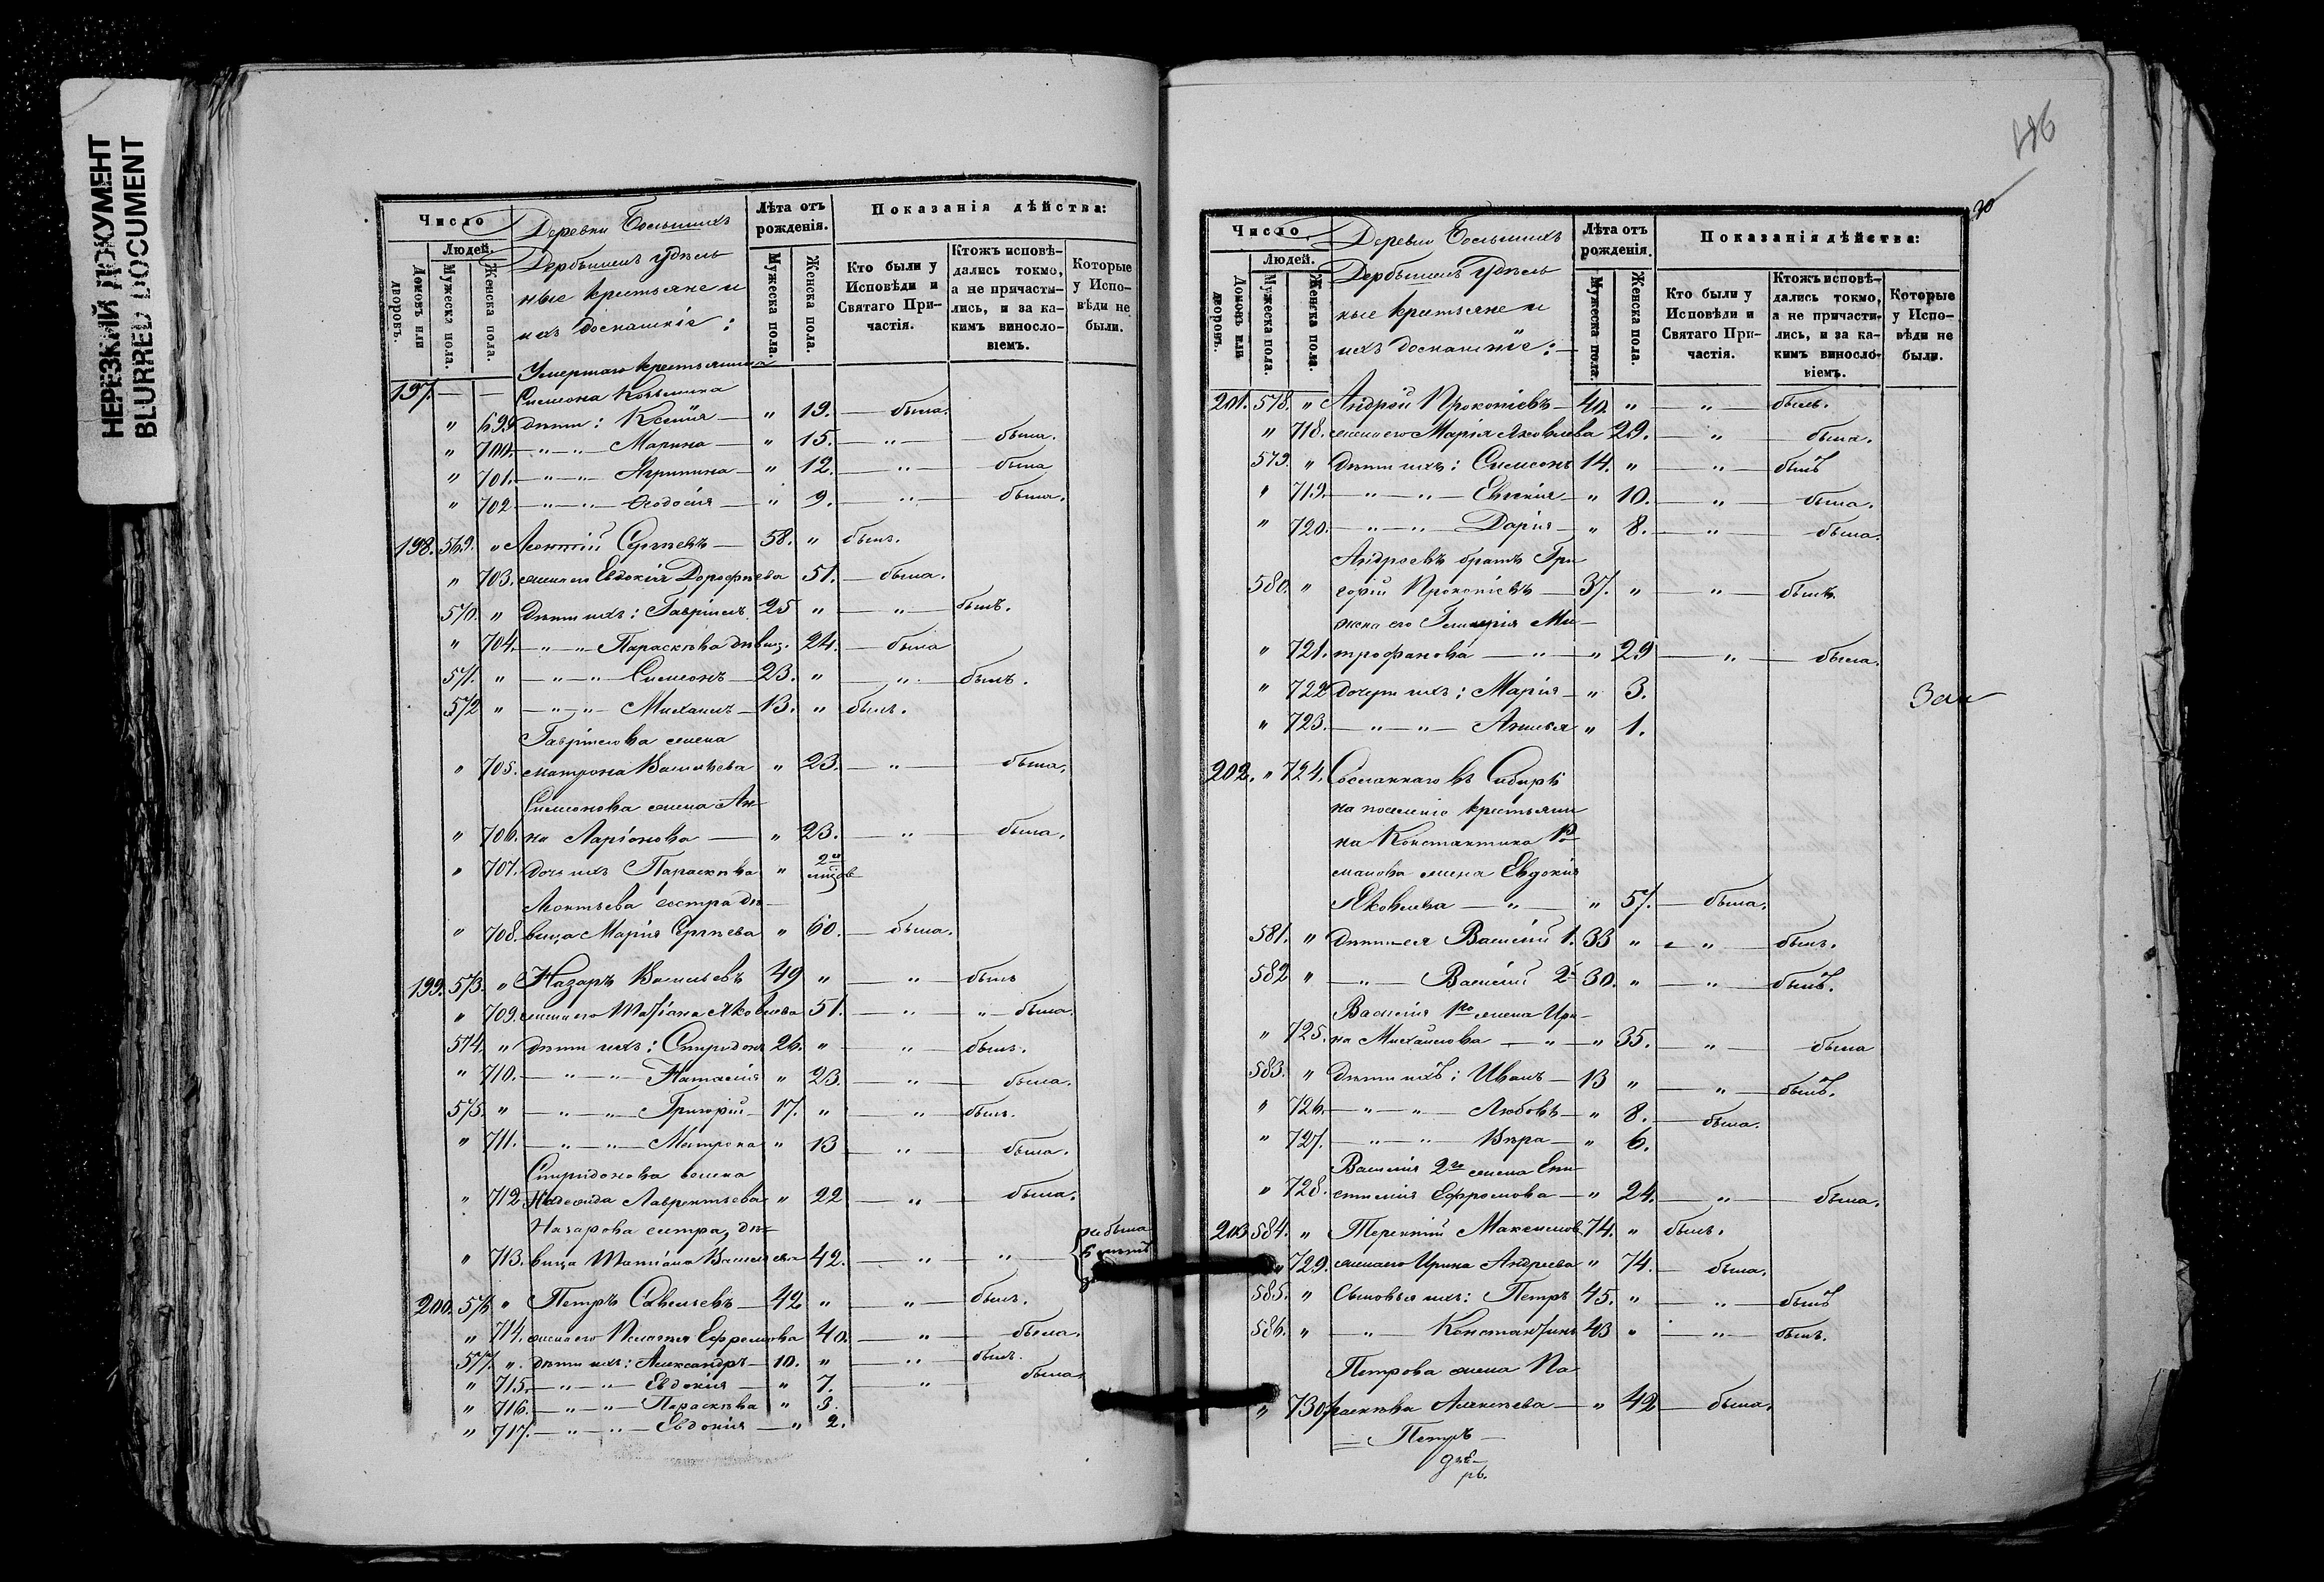 НЕРЕЗКИЙ ДОКУМЕНТ
BLURRED DOCUMENT
Число
Людей
Домовъ или дворовъ.
Мужеска пола.
Женска пола.
Деревни Большихъ
Дербышекъ удѣль
ные крестьяне и
ихъ домашніе:
Лѣта отъ рожденія.
Мужеска пола.
Женска пола.
Показанія дѣйства:
Кто были у Исповѣди и Святаго Причастія.
Ктожъ исповѣдались токмо, а не причастились, и за какимъ винословіемъ.
Которые у Исповѣди не были.
Умершаго крестьянина
197. — — Симеона Козьмина
" 699 дѣти: Ксенія — " 19. — была.
" 700. — " — " — Марина — " 15. — " — была.
" 701. — " — " — Агрипина — " 12. — " — была
" 702 — " — " — Ѳеодосія — " 9. — " — была.
198. 569. " Леонтій Сергѣевъ — 58. " былъ.
" 703. жена его Евдокія Дорофѣева 51. — была.
570. " дѣти ихъ: Гавріилъ 25 " — " — былъ.
" 704. — " — " — Параскѣва дѣвиц. 24. — была
571. " — " — " — Симеонъ — 23. " — " — былъ.
572 " — " — " — Михаилъ — 13. " былъ.
Гавріилова жена
" 705. Матрона Васильева " 23. — " — была.
Симеонова жена Ан-
" 706. на Ларіонова — " 23. — " — была.
" 707. дочь ихъ Параскѣва "
Леонтьева сестра дѣ-
" 708. вица Марія Сергѣева " 60. — была.
199. 573. " Назаръ Васильевъ 49 " — " — былъ
" 709. жена его Татіана Яковлева 51. — " — " — была.
574. " дѣти ихъ: Спиридонъ 26. " — " — былъ.
" 710. — " — " — Наталія " 23. — " — была.
575. " — " — " — Григорій — 17. " — " — былъ.
" 711. — " — " — Матрона " 13 — " — была.
Спиридонова жена
" 712 Надежда Лаврентьева " 22 — " — была.
Назарова сестра, дѣ-
" 713. вица Татіана Васильева 42. — " — "
не была
200. 576 " Петръ Савельевъ — 42 " — " — былъ.
" 714. жена его Пелагея Ефремова 40. — " — была.
577. " дѣти ихъ: Александръ — 10. " — " — былъ.
" 715. — " — " — Евдокія — " 7. — " — была.
" 716. — " — " — Параскѣва " 3.
" 717. — " — " — Евдокія — " 2.
Число
Людей.
Домовъ или дворовъ.
Мужеска пола.
Женска пола.
Деревни Большихъ
Дербышекъ удѣль
ные крестьяне и
ихъ домашніе:
Лѣта отъ рожденія.
Мужеска пола.
Женска пола.
Показанія дѣйства:
Кто были у Исповѣди и Святаго Причастія.
Ктожъ исповѣдались токмо, а не причастились, и за какимъ винословіемъ.
Которые у Исповѣди не были.
201. 578. " Андрей Прокопіевъ — 40. " — " — былъ.
" 718. жена его Марія Яковлева 29. — " — была.
579. " дѣти ихъ: Симеонъ 14. " — " — былъ
" 719. — " — " — Евгенія — " 10. — " — была.
" 720. — " — " — Дарія — " 8. — " — была.
Андреевъ братъ Гри
580. " горій Прокопіевъ — 37. " — " — былъ.
жена его Гликерія Ми-
" 721. трофанова — " — " 29 — " — была.
" 722 дочери ихъ: Марія — " 3.
" 723. — " — " — Анисья " 1.
202. " 724. Сосланнаго въ Сибирь
на поселеніе крестьяни
на Константина Ро
манова жена Евдокія
Яковлева — " — " 57. — была.
581. " дѣти ея Василій 1. 33 " — " — былъ.
582 " — " — Василій 2й 30. " — " — былъ.
Василія 1го жена Ири-
" 725. на Михайлова — " — " 35. — " — была
583. " дѣти ихъ: Иванъ — 13 " — " — былъ.
" 726. — " — " — Любовь — " 8. — была.
" 727. — " — " — Вѣра — " 6.
Василія 2го жена Епи-
" 728. стимія Ефремова — " 24. — " — была.
203 584. " Терентій Максимовъ 74. " былъ.
" 729. жена его Ирина Андреева " 74. — была.
585. " Сыновья ихъ: Петръ 45. " — " — былъ
586. " — " Константинъ 43 " — " — былъ.
Петрова жена Па-
" 730. раскѣва Алексѣева — " 42 — была.
Петръ